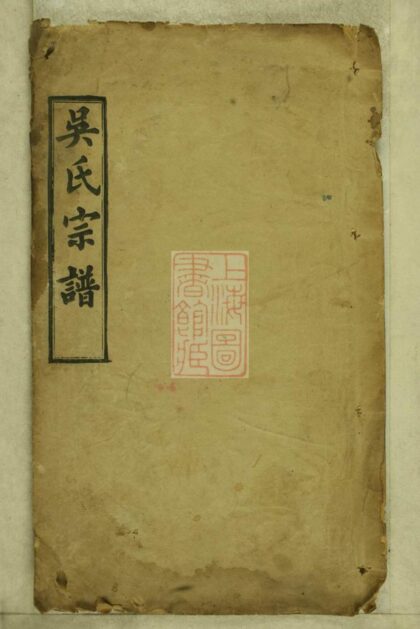 吳氏宗譜
上海圖
書館藏